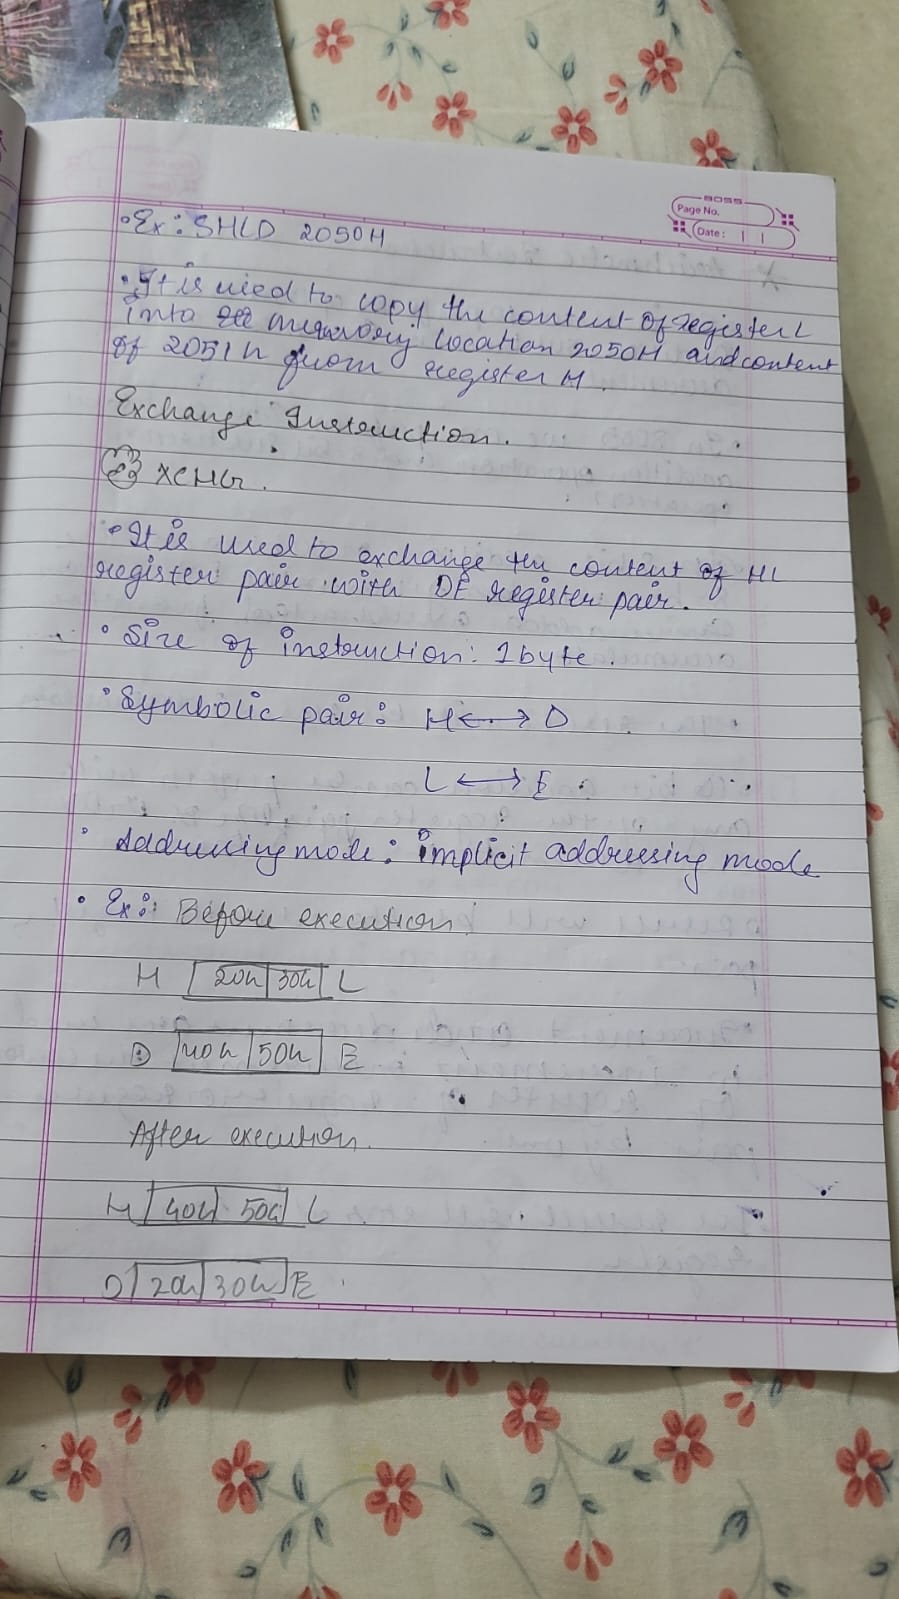 BOSS
Page No.
Date:
• Ex: SHLD 2050H
• It is used to copy the content of register L
into memory location 2050H and content
of 2051h from register H.
Exchange Instruction.
XCHG.
• It is used to exchange the content of HL
register pair with DE register pair.
• Size of instruction: 1byte.
• Symbolic pair: H ⟷ D
L ⟷ E
• Addressing mode: implicit addressing mode
• Ex: Before execution
H 20h 30h L
D 40h 50h E
After execution.
H 40h 50h L
D 20h 30h E